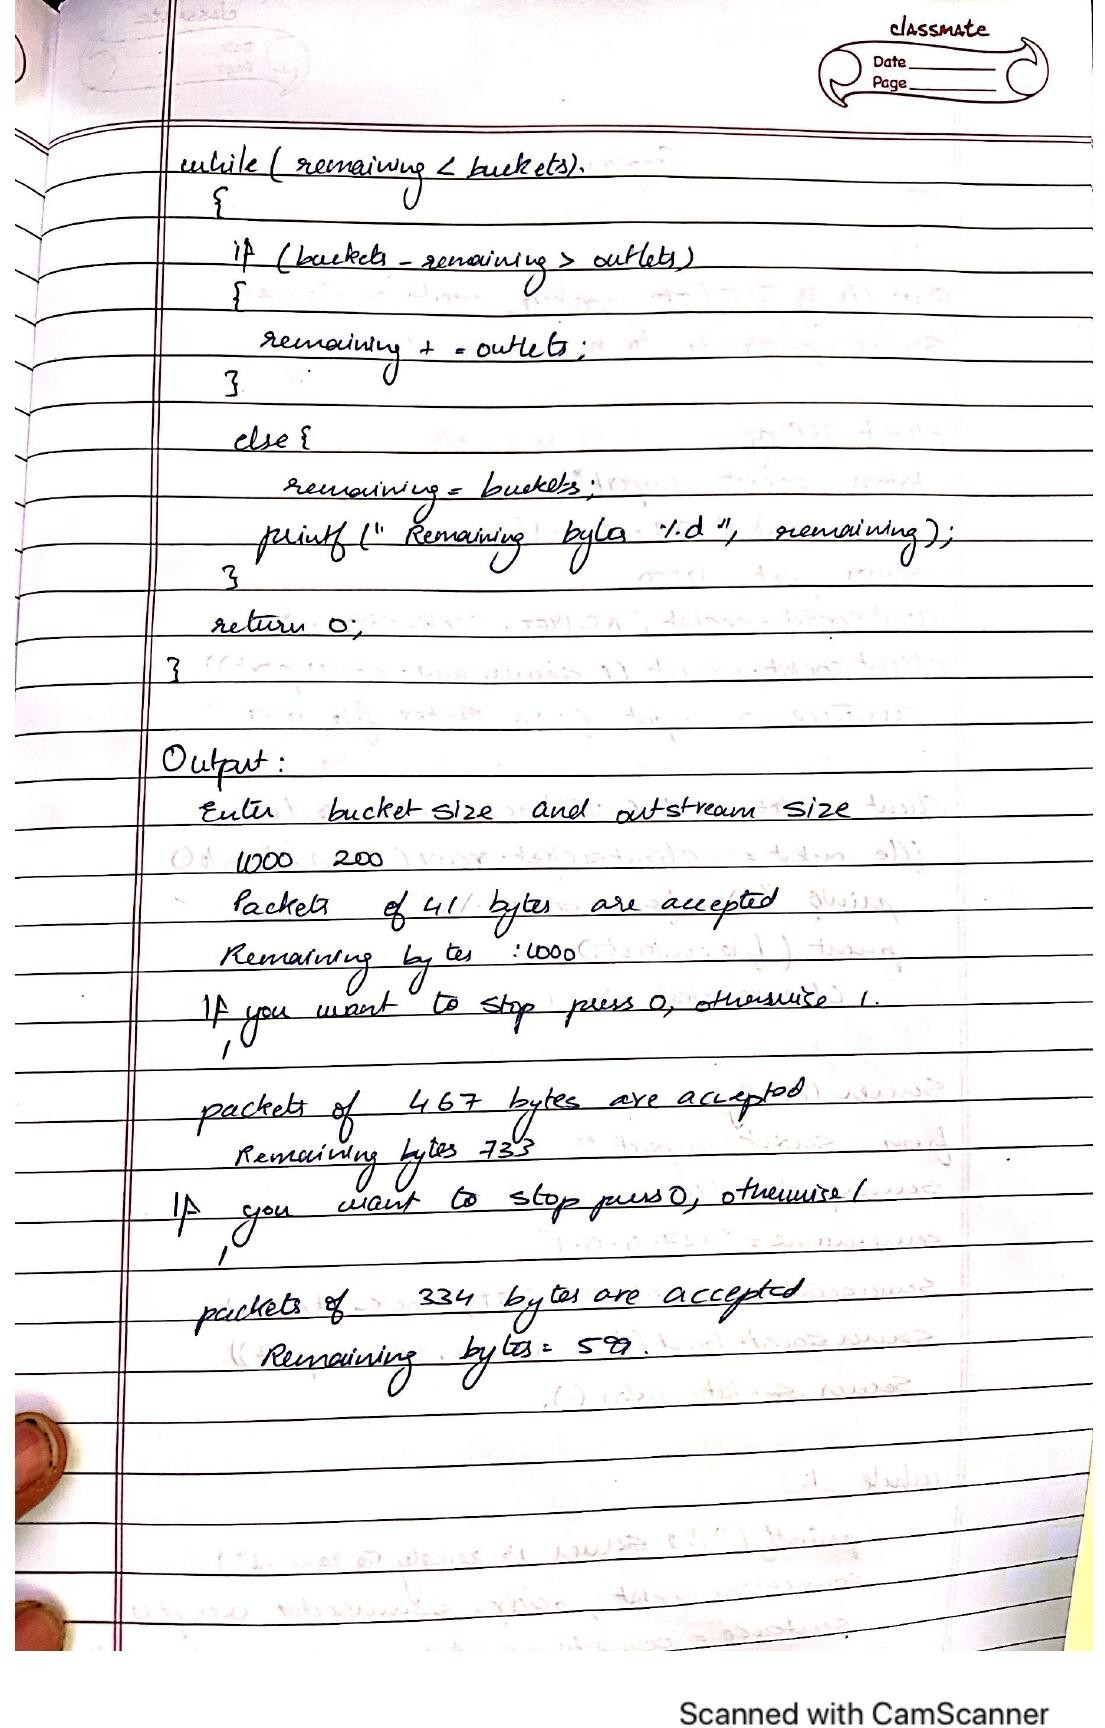 classmate
Date
Page
while ( remaining < buckets).
{
if (buckets - remaining > outlets)
{
remaining + = outlets ;
}
else {
remaining = buckets ;
printf (" Remaining bytes %d ", remaining);
}
return 0;
}
Output :
Enter bucket size and outstream size
1000 200
Packets of 411 bytes are accepted
Remaining bytes : 1000
If you want to stop press 0, otherwise 1.
1
packets of 467 bytes are accepted
Remaining bytes 733
If you want to stop press 0, otherwise 1
1
packets of 334 bytes are accepted
Remaining bytes = 599.
Scanned with CamScanner